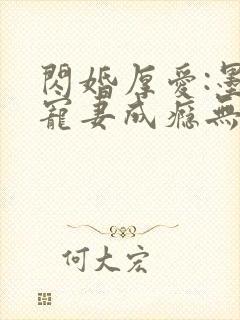 閃婚厚愛:墨
寵妻成癮無
何大宏